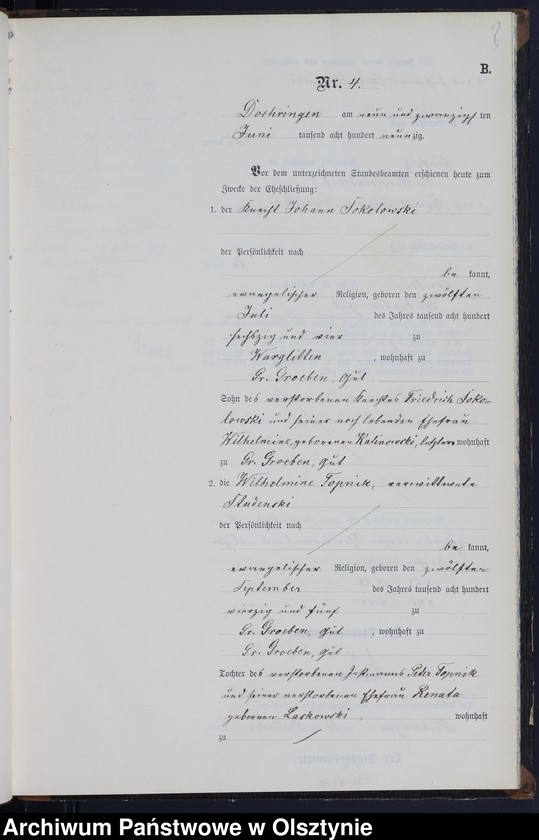 8
B.
Nr. 4.
Doehringen am neun und zwanzigsten
Juni tausend acht hundert neunzig.
Vor dem unterzeichneten Standesbeamten erschienen heute zum
Zwecke der Eheschließung:
1. der Knecht Johann Sokolowski
der Persönlichkeit nach
be kannt,
evangelischer Religion, geboren den zwölften
Juli des Jahres tausend acht hundert
sechszig und vier zu
Warglitten, wohnhaft zu
Gr. Groeben, Gut
Sohn des verstorbenen Knechtes Friedrich Soko-
lowski und seiner noch lebenden Ehefrau
Wilhelmine, geborenen Kalinowski, letztere wohnhaft
zu Gr. Groeben, Gut
2. die Wilhelmine Topnik, verwittwete
Studenski
der Persönlichkeit nach
be kannt,
evangelischer Religion, geboren den zwölften
September des Jahres tausend acht hundert
vierzig und fünf zu
Gr. Groeben, Gut, wohnhaft zu
Gr. Groeben, Gut
Tochter des verstorbenen Instmanns Peter Topnik
und seiner verstorbenen Ehefrau Renata
geborenen Laskowski, wohnhaft
zu
Archiwum Państwowe w Olsztynie